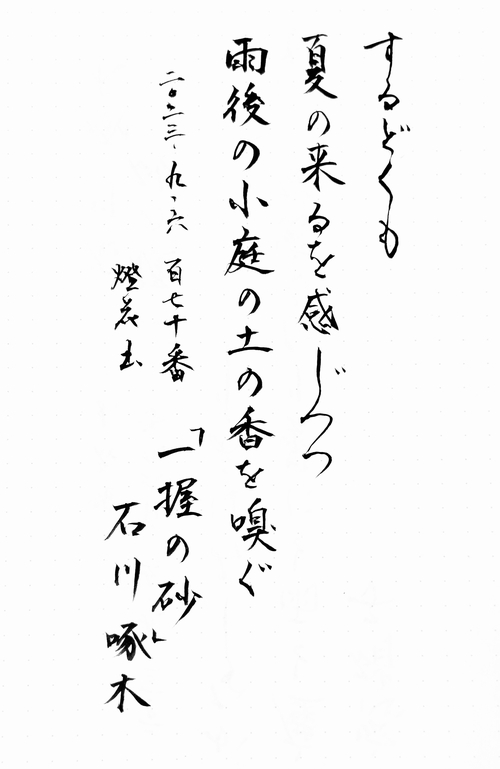 するどくも
夏の来るを感じつつ
雨後の小庭の土の香を嗅ぐ
二〇二三、九、六 百七十番
「一握の砂」
石川啄木